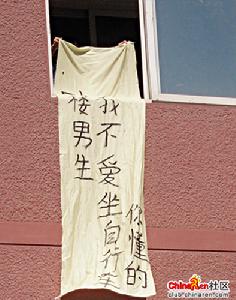 楼男生
我不爱坐自行车
你懂的
ChinaRen社区
club.chinaren.com